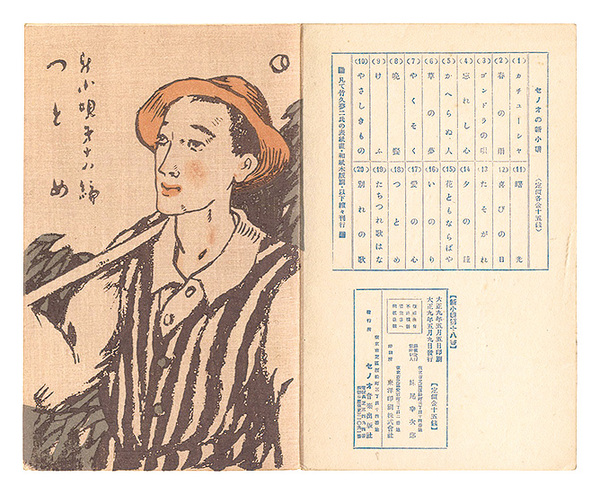 新小唄第十八編
つとめ
セノオの新小唄
(定價各金十五錢)
(1) カチューシャ
(2) 春の雨
(3) ゴンドラの唄
(4) 忘れし心
(5) かへらぬ人
(6) 草の夢
(7) やくそく
(8) 晩餐
(9) けふ
(10) やさしきもの
(11) 曙光
(12) 喜びの日
(13) たそがれ
(14) 夕の鐘
(15) 花ともならばや
(16) いのり
(17) 愛の心
(18) つとめ
(19) たちつれ歌はな
(20) 別れの歌
凡て竹久夢二氏の表紙畫・和紙木版刷・以下續々刊行
【新小唄第十八號】
大正九年五月五日印刷
大正九年五月九日發行
【定價金十五錢】
妹尾幸次郎
東洋印刷株式會社
發行所
セノオ音樂出版社